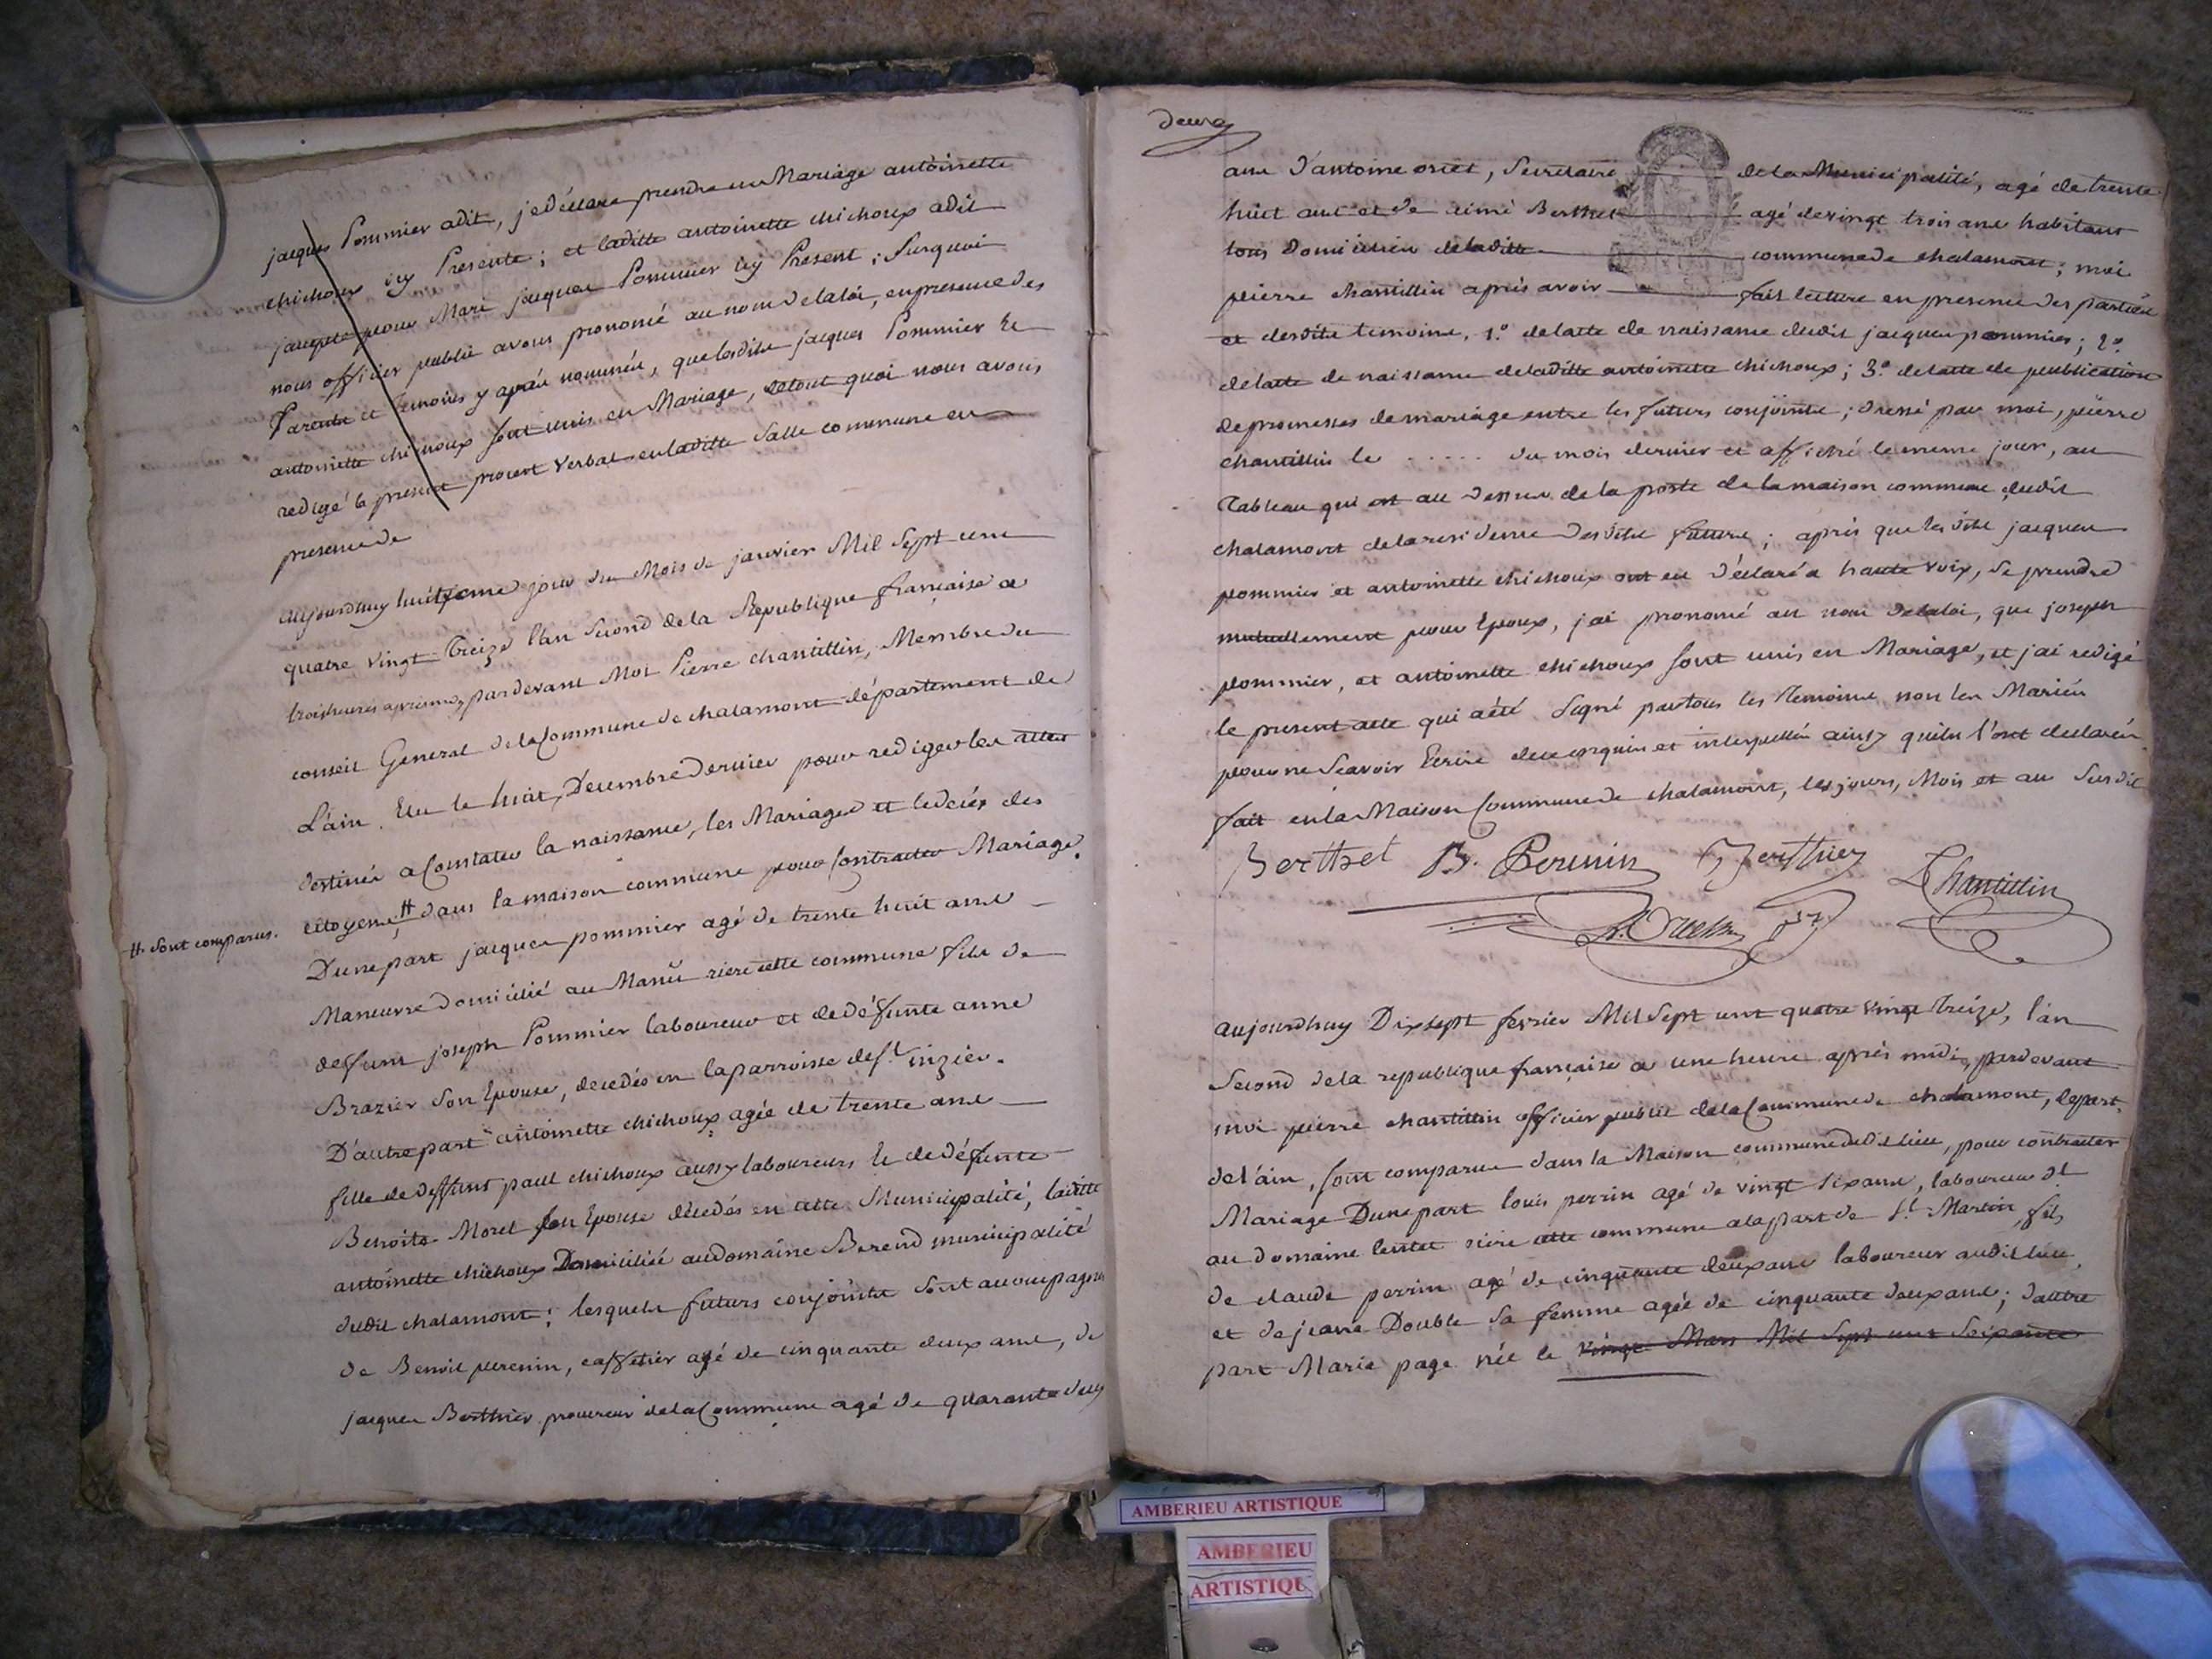 jacques Pommier a dit, je déclare prendre en Mariage antoinette
chichoux icy Presente; et laditte antoinette chichoux a dit
jaccepte pour Mari jacques Pommier icy Present; Surquoi
nous officier public avons prononcé au nom de la loi, en presence des
Parents et Temoins y après nommés, que lesdits jacques Pommier et
antoinette chichoux sont unis en Mariage, de tout quoi nous avons
redigé le present procert verbal en laditte Salle commune en
presence de
aujourdhuy huitieme jour du Mois de janvier Mil Sept cent
quatre vingt Treize l'an Second de la Republique française a
trois heures après midy pardevant Moi Pierre chantillin, Membre du
conseil General de la Commune de chalamont département de
L'ain. Elu le huit Decembre Dernier pour rediger les actes
destinés a Constater la naissance, les Mariages et le decès des
citoyens, # dans la maison commune pour Contracter Mariage.
# sont comparus.
D'une part jacques pommier agé de trente huit ans
Maneuvre domicilié au riere cette commune fils de
deffunt joseph Pommier laboureur et de défunte anne
Brazier Son Epouse, decedés en la parroisse de St. inzier.
D'autre part antoinette chichoux agée de trente ans
fille de deffunt paul chichoux aussy laboureurs Et de défunte
Benoite Morel son Epouse décedés en cette Municipalité, laditte
antoinette chichoux Domiciliée au domaine Berend municipalité
dudit chalamont; lesquels futurs conjoints sont accompagnés
de Benoit perenin, caffetier agé de cinquante deux ans, de
jacques Berthier procureur de la Commune agé de quarante deux
deux
ans d'antoine oriet, Secretaire de la Municipalité, agé de trente
huit ans et de aimé Berthet agé de vingt trois ans habitans
tous Domiciliés de laditte commune de chalamont; moi
pierre chantillin après avoir fait lecture en presence des parties
et desdits temoins, 1.º de lacte de naissance dudit jacques pommier; 2.º
de lacte de naissance de laditte antoinette chichoux; 3.º de lacte de publication
de promesses de mariage entre les futurs conjoints; dressé par moi, pierre
chantillin le ..... du mois dernier et affiché le meme jour, au
Tableau qui est au dessus de la porte de la maison commune dudit
chalamont de la residence desdits futurs; après que lesdits jacques
pommier et antoinette chichoux ont eu déclaré a haute voix, se prendre
mutuellement pour Epoux, jai prononcé au nom de la loi, que joseph
pommier, et antoinette chichoux sont unis en Mariage, et jai redigé
le present acte qui a été Signé par tous les Temoins non les Mariés
pour ne Scavoir Ecrire de ce enquis et interpellés ainsy quils l'ont declarés.
fait en la Maison Commune de chalamont, les jours, Mois et an Susdit
Berthet B. Perenin Berthier
Chantillin
aujourdhuy Dixsept fevrier Mil Sept cent quatre vingt treize, l'an
Second de la republique française a une heure après midi, pardevant
moi pierre chantillin officier public de la Commune de chalamont, depart.
de l'ain, sont comparus dans la Maison commune dudit lieu, pour contracter
Mariage D'une part louis perrin agé de vingt six ans, laboureur dt
au domaine riere cette commune a la part de St. Martin fils
de claude perrin agé de cinquante deux ans laboureur audit lieu,
et de jeane Double sa femme agée de cinquante deux ans; dautre
part Marie page née le vingt Mars Mil Sept cent Soixante
AMBERIEU ARTISTIQUE
AMBERIEU
ARTISTIQU